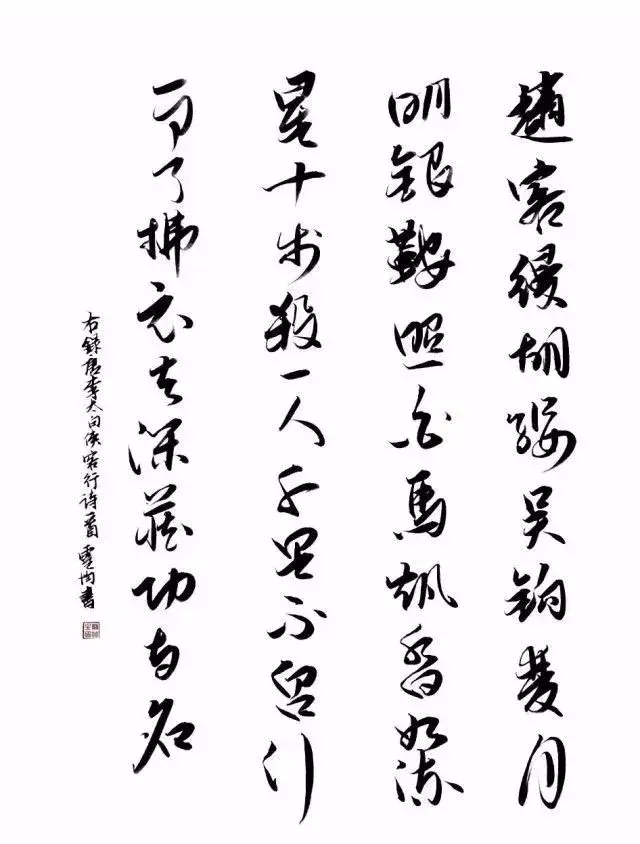 趙客縵胡纓吳鉤月
明銀鞍照白馬颯沓如流
星十步殺一人千里不留行
事了拂衣去深藏功与名
右錄唐李太白俠客行詩一首書